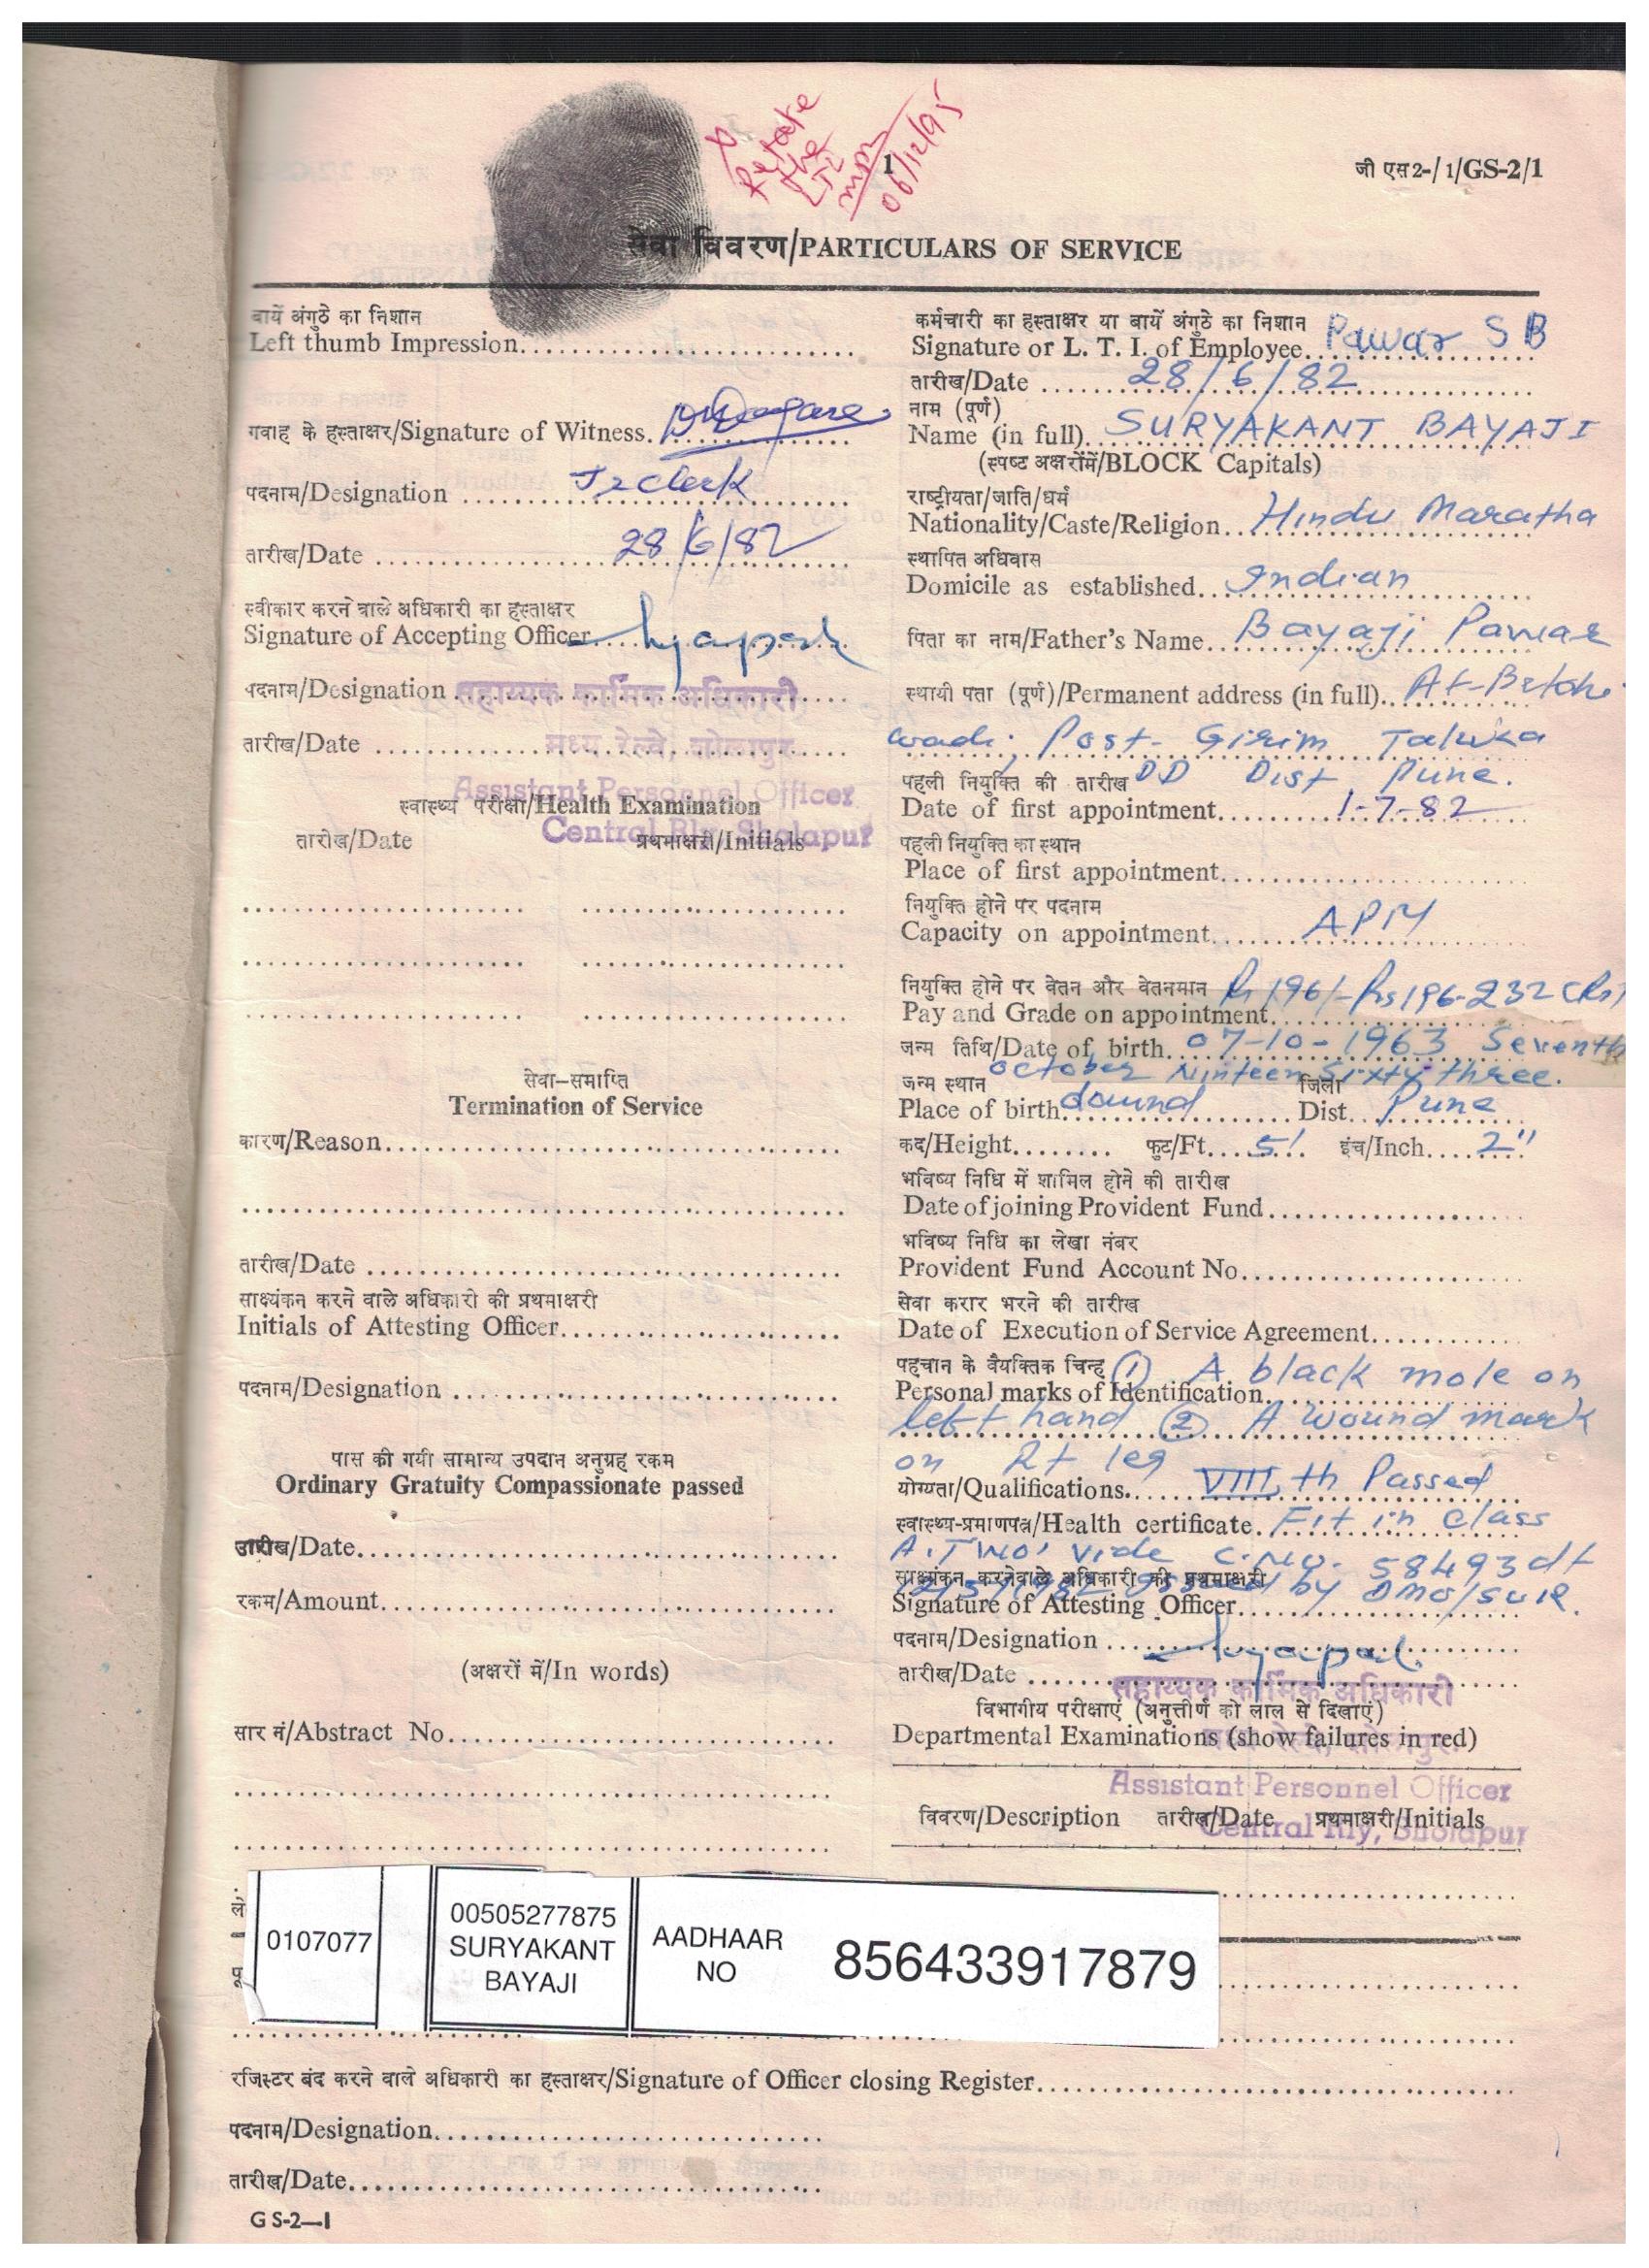 Retake
the
LTI
06/12/95
1
जी एस2-/1/GS-2/1
सेवा विवरण/PARTICULARS OF SERVICE
बायें अंगुठे का निशान
Left thumb Impression
गवाह के हस्ताक्षर/Signature of Witness.
पदनाम/Designation Jr clerk
तारीख/Date 28/6/82
स्वीकार करने वाले अधिकारी का हस्ताक्षर
Signature of Accepting Officer
पदनाम/Designation सहाय्यक कार्मिक अधिकारी
तारीख/Date मध्य रेल्वे, सोलापुर
Assistant Personnel Officer
स्वास्थ्य परीक्षा/Health Examination
Central Rly, Sholapur
तारीख/Date प्रथमाक्षरी/Initials
सेवा-समाप्ति
Termination of Service
कारण/Reason
तारीख/Date
साक्ष्यंकन करने वाले अधिकारी की प्रथमाक्षरी
Initials of Attesting Officer
पदनाम/Designation
पास की गयी सामान्य उपदान अनुग्रह रकम
Ordinary Gratuity Compassionate passed
तारीख/Date
रकम/Amount
(अक्षरों में/In words)
सार नं/Abstract No.
कर्मचारी का हस्ताक्षर या बायें अंगुठे का निशान
Signature or L. T. I. of Employee. Pawar S B
तारीख/Date 28/6/82
नाम (पूर्ण)
Name (in full) SURYAKANT BAYAJI
(स्पष्ट अक्षरोंमें/BLOCK Capitals)
राष्ट्रीयता/जाति/धर्म
Nationality/Caste/Religion Hindu Maratha
स्थापित अधिवास
Domicile as established Indian
पिता का नाम/Father's Name Bayaji Pawar
स्थायी पता (पूर्ण)/Permanent address (in full) At-
wadi, Post- Girim Taluka
DD Dist Pune.
पहली नियुक्ति की तारीख
Date of first appointment 1-7-82
पहली नियुक्ति का स्थान
Place of first appointment
नियुक्ति होने पर पदनाम
Capacity on appointment APM
नियुक्ति होने पर वेतन और वेतनमान Rs 196/- Rs 196-232 (Rs)
Pay and Grade on appointment
जन्म तिथि/Date of birth 07-10-1963 Seventh
October Ninteen Sixty three.
जन्म स्थान जिला
Place of birth dound Dist. Pune
कद/Height फुट/Ft. 5' इंच/Inch 2"
भविष्य निधि में शामिल होने की तारीख
Date of joining Provident Fund
भविष्य निधि का लेखा नंबर
Provident Fund Account No.
सेवा करार भरने की तारीख
Date of Execution of Service Agreement
पहचान के वैयक्तिक चिन्ह (1) A black mole on
Personal marks of Identification
left hand (2) A wound mark
on Rt leg
योग्यता/Qualifications VIII th Passed
स्वास्थ्य-प्रमाणपत्र/Health certificate. Fit in class
A.TWO' vide C.NO. 58493 dt
by DMO/SUR.
साक्ष्यंकन करनेवाले अधिकारी की प्रथमाक्षरी
Signature of Attesting Officer
पदनाम/Designation
तारीख/Date
सहाय्यक कार्मिक अधिकारी
विभागीय परीक्षाएं (अनुत्तीर्ण को लाल से दिखाएं)
Departmental Examinations (show failures in red)
Assistant Personnel Officer
विवरण/Description तारीख/Date प्रथमाक्षरी/Initials
Central Rly, Sholapur
0107077
00505277875
SURYAKANT
BAYAJI
AADHAAR
NO
856433917879
रजिस्टर बंद करने वाले अधिकारी का हस्ताक्षर/Signature of Officer closing Register
पदनाम/Designation
तारीख/Date
G S-2—1